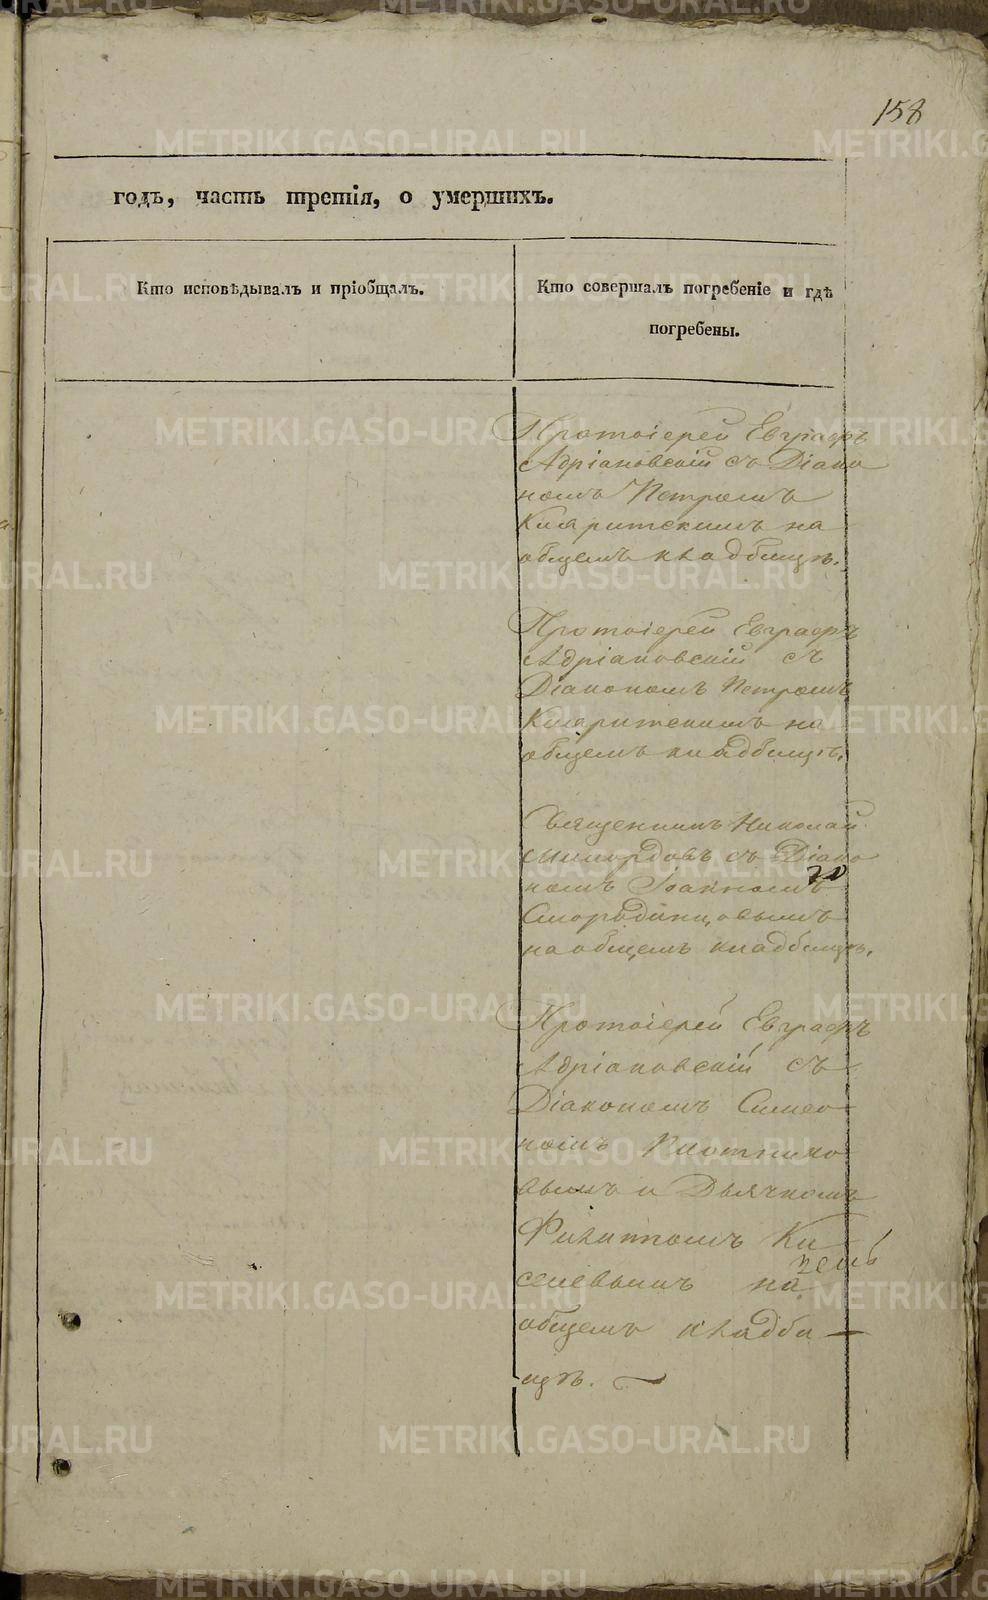 158
годъ, часть третія, о умершихъ.
Кто исповѣдывалъ и пріобщалъ.
Кто совершалъ погребеніе и гдѣ
погребены.
Протоіерей Евграфъ
Адріановскій съ Діако
номъ Петромъ
на
общемъ кладбищѣ.
Протоіерей Евграфъ
Адріановскій съ
Діакономъ Петромъ
на
общемъ кладбищѣ.
Священникъ Николай
съ Діако
номъ Іоанномъ
Смородинцовымъ
на общемъ кладбищѣ.
Протоіерей Евграфъ
Адріановскій съ
Діакономъ Симео
номъ Плотнико
вымъ и Дьячкомъ
Филиппомъ Ки
селевымъ на
общемъ кладби
щѣ.
METRIKI.GASO-URAL.RU